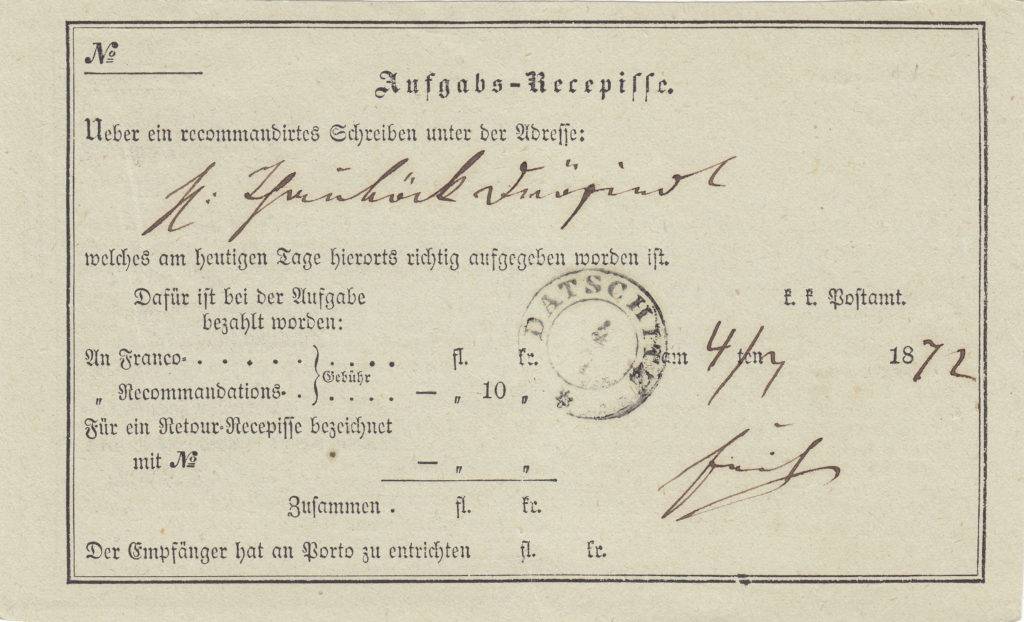 №
Aufgabs-Recepisse.
Ueber ein recommandirtes Schreiben unter der Adresse:
welches am heutigen Tage hierorts richtig aufgegeben worden ist.
Dafür ist bei der Aufgabe
bezahlt worden:
k. k. Postamt.
DATSCHITZ
4
An Franco- . . . . . } . . . . fl. kr. am 4/7 ten 1872
„ Recommandations- . } Gebühr . . . . — „ 10 „
Für ein Retour-Recepisse bezeichnet
mit № — „ „
Zusammen . fl. kr.
Der Empfänger hat an Porto zu entrichten fl. kr.